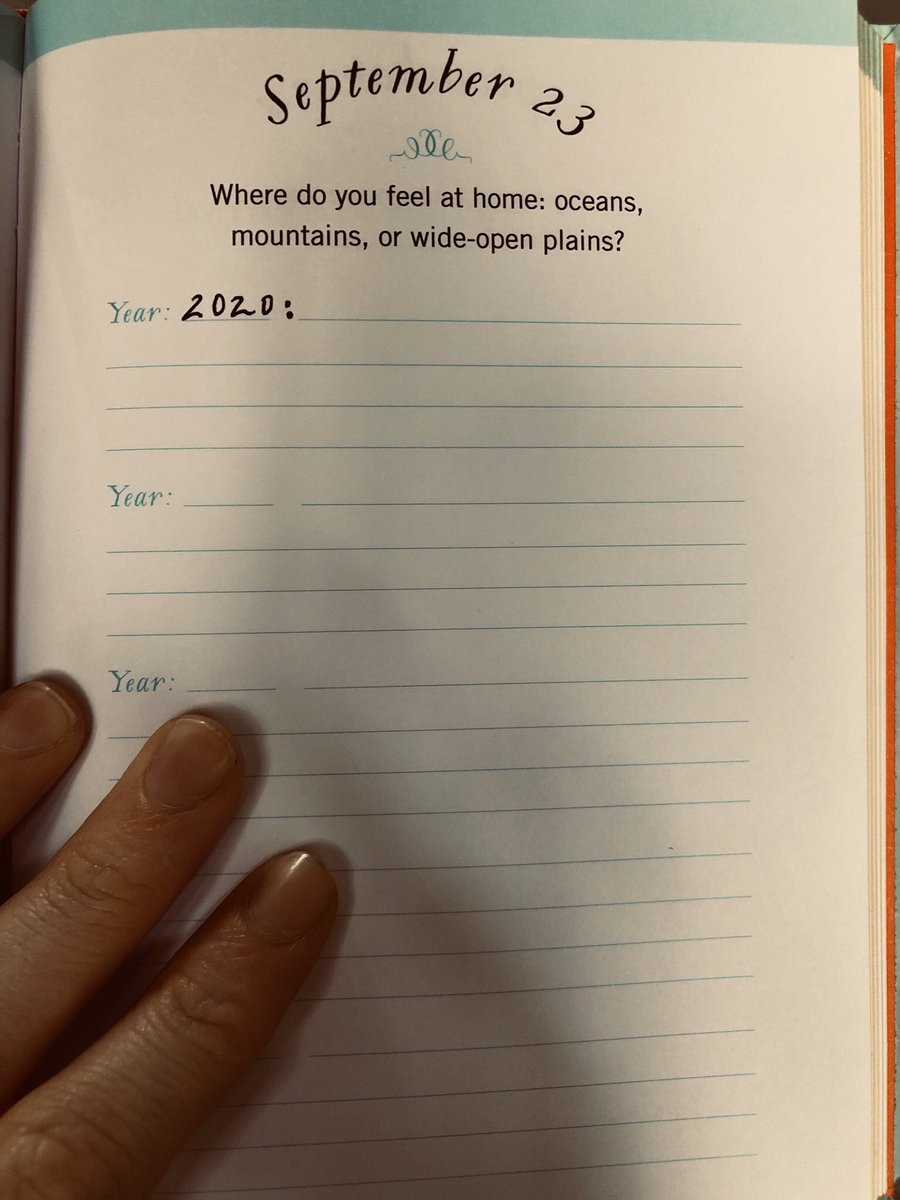 September 23
Where do you feel at home: oceans,
mountains, or wide-open plains?
Year: 2020:
Year:
Year: